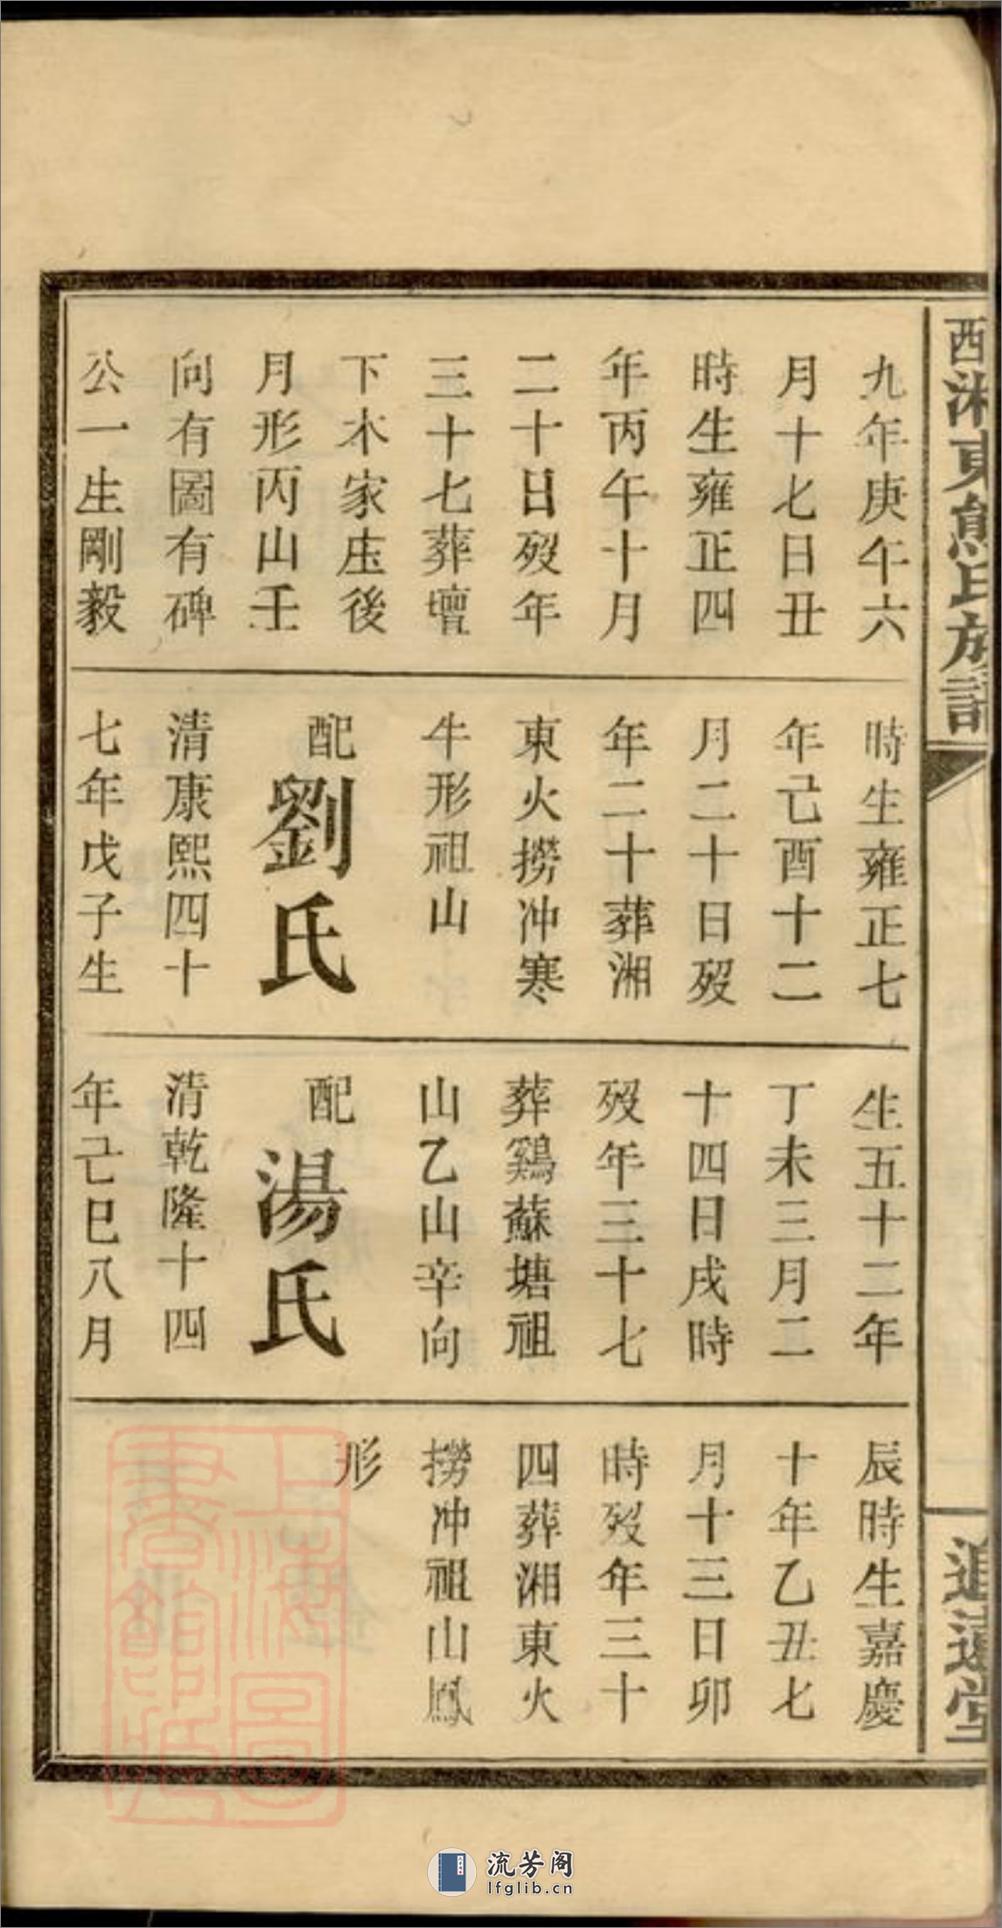 西湘東熊氏族譜
追遠堂
九年庚午六
月十七日丑
時生雍正四
年丙午十月
二十日歿年
三十七葬壇
下木家庄後
月形丙山壬
向有圖有碑
公一生剛毅
時生雍正七
年己酉十二
月二十日歿
年二十葬湘
東火撈冲寒
牛形祖山
配劉氏
清康熙四十
七年戊子生
生五十二年
丁未三月二
十四日戌時
歿年三十七
葬鷄蘇塘祖
山乙山辛向
配湯氏
清乾隆十四
年己巳八月
辰時生嘉慶
十年乙丑七
月十三日卯
時歿年三十
四葬湘東火
撈冲祖山鳳
形
上海圖書館藏
流芳阁
lfglib.cn